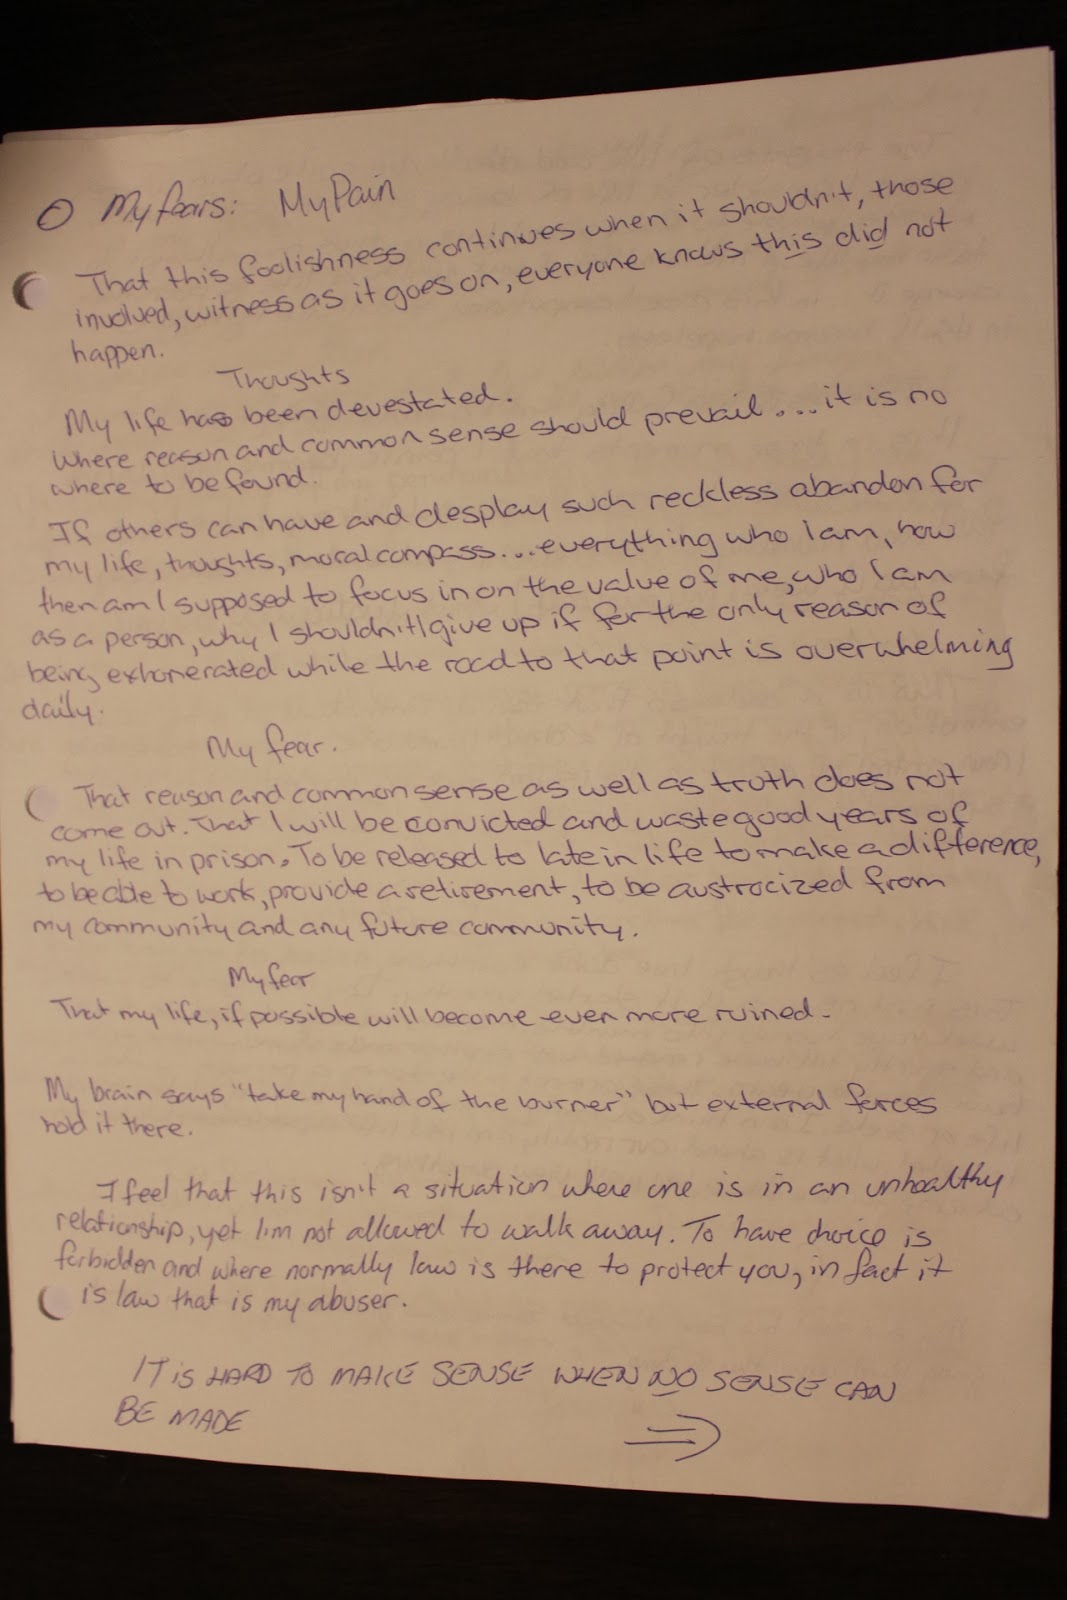 My fears: My Pain
That this foolishness continues when it shouldn't, those
involved, witness as it goes on, everyone knows this did not
happen.
Thoughts
My life has been devestated.
Where reason and common sense should prevail....it is no
where to be found.
If others can have and desplay such reckless abandon for
my life, thoughts, moral compass...everything who I am, how
then am I supposed to focus in on the value of me, who I am
as a person, why I shouldn't give up if for the only reason of
being exhonerated while the road to that point is overwhelming
daily.
My fear.
That reason and common sense as well as truth does not
come out. That I will be convicted and waste good years of
my life in prison. To be released to late in life to make a difference,
to be able to work, provide a retirement, to be austrocized from
my community and any future community.
My fear
That my life, if possible will become even more ruined.
My brain says "take my hand of the burner" but external forces
hold it there.
I feel that this isn't a situation where one is in an unhealthy
relationship, yet I'm not allowed to walk away. To have choice is
forbidden and where normally law is there to protect you, in fact it
is law that is my abuser.
IT is HARD TO MAKE SENSE WHEN NO SENSE CAN
BE MADE